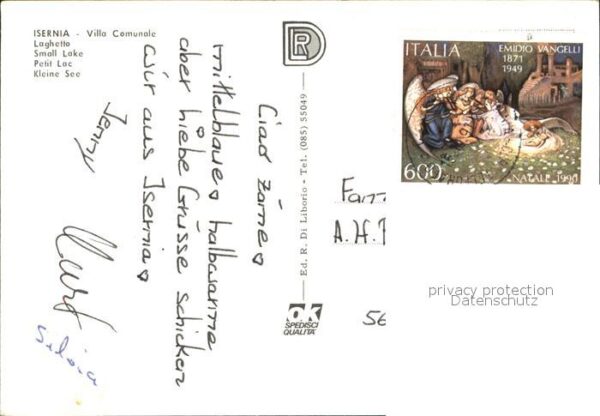 ISERNIA - Villa Comunale
Laghetto
Small Lake
Petit Lac
Kleine See
Ciao zäme
mittelblaue halbwarme
aber liebe Grüsse schicken
wir aus Isernia
Jenny
Kurt
Silvia
DR
Ed. R. Di Liborio - Tel. (085) 55049
ok
SPEDISCI
QUALITÀ
ITALIA
EMIDIO VANGELLI
1871
1949
600
NATALE 1990
Fam
A.H.
56
privacy protection
Datenschutz